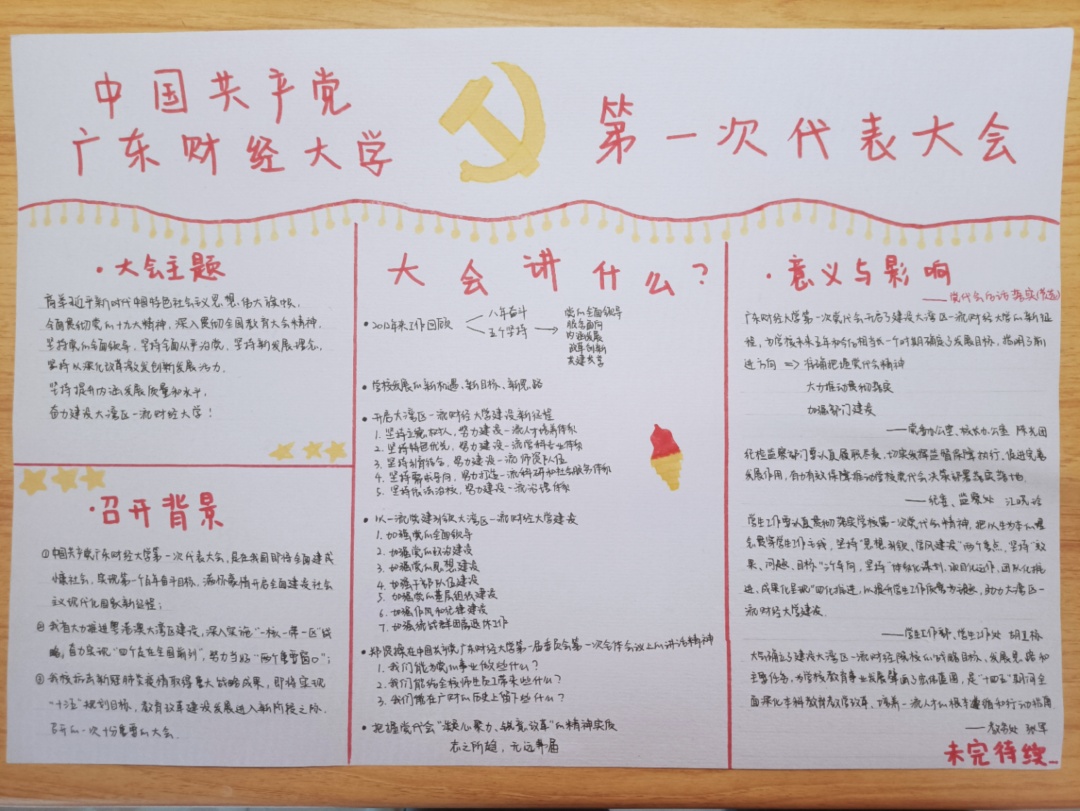 中国共产党
广东财经大学
第一次代表大会
·大会主题
高举习近平新时代中国特色社会主义思想伟大旗帜,
全面贯彻党的十九大精神,深入贯彻全国教育大会精神,
坚持党的全面领导,坚持全面从严治党,坚持新发展理念,
坚持以深化改革激发创新发展活力,
坚持提升内涵发展质量和水平,
奋力建设大湾区一流财经大学!
·召开背景
①中国共产党广东财经大学第一次代表大会,是在我国即将全面建成
小康社会,实现第一个百年奋斗目标,满怀豪情开启全面建设社会
主义现代化国家新征程;
②我省大力推进粤港澳大湾区建设,深入实施"一核一带一区"战
略,奋力实现"四个走在全国前列",努力当好"两个重要窗口";
③我校抗击新冠肺炎疫情取得重大战略成果,即将实现
"十三五"规划目标,教育改革建设发展进入新阶段之际,
召开的一次十分重要的大会.
大会讲什么?
·2012年来工作回顾
八年奋斗
五个坚持
党的全面领导
服务面向
内涵发展
改革创新
共建共享
·学校发展的新机遇、新目标、新思路
·开启大湾区一流财经大学建设新征程
1. 坚持立德树人,努力建设一流人才培养体系
2. 坚持特色优先,努力建设一流学科专业体系
3. 坚持引育结合,努力建设一流师资队伍
4. 坚持需求导向,努力打造一流科研和社会服务体系
5. 坚持依法治校,努力建设一流治理体系
·以一流党建引领大湾区一流财经大学建设
1. 加强党的全面领导
2. 加强党的政治建设
3. 加强党的思想建设
4. 加强干部队伍建设
5. 加强党的基层组织建设
6. 加强作风和纪律建设
7. 加强统战群团离退休工作
·郑贤操在中国共产党广东财经大学第一届委员会第一次全体会议上的讲话精神
1. 我们能为党的事业做些什么?
2. 我们能给全校师生员工带来些什么?
3. 我们能在广财的历史上留下些什么?
·把握党代会"凝心聚力、锐意改革"的精神实质
志之所趋,无远弗届
·意义与影响
——党代会后话落实(节选)
广东财经大学第一次党代会开启了建设大湾区一流财经大学的新征
程,为学校未来五年和今后相当长一个时期确定了发展目标,指明了前
进方向 => 准确把握党代会精神
大力推动贯彻落实
加强部门建设
——党委办公室、校长办公室 陈光国
纪检监察部门要认真履职尽责,切实发挥监督保障执行、促进完善
发展作用,有力有效保障推动学校党代会决策部署落实落地.
——纪委、监察处
学生工作要认真贯彻落实学校第一次党代会精神,把以生为本的理
念贯穿学生工作主线,坚持"思想引领、学风建设"两个重点,坚持"效
果、问题、目标"三个导向,坚持"体系化谋划,项目化运作,团队化推
进,成果化呈现"四化推进,以提升学生工作质量为诉求,助力大湾区一
流财经大学建设.
——学生工作部、学生工作处
大会确立了建设大湾区一流财经院校的战略目标、发展思路和
主要任务,为学校教育事业发展擘画了宏伟蓝图,是"十四五"期间全
面深化本科教育教学改革、培养一流人才的根本遵循和行动指南
——教务处 张军
未完待续…